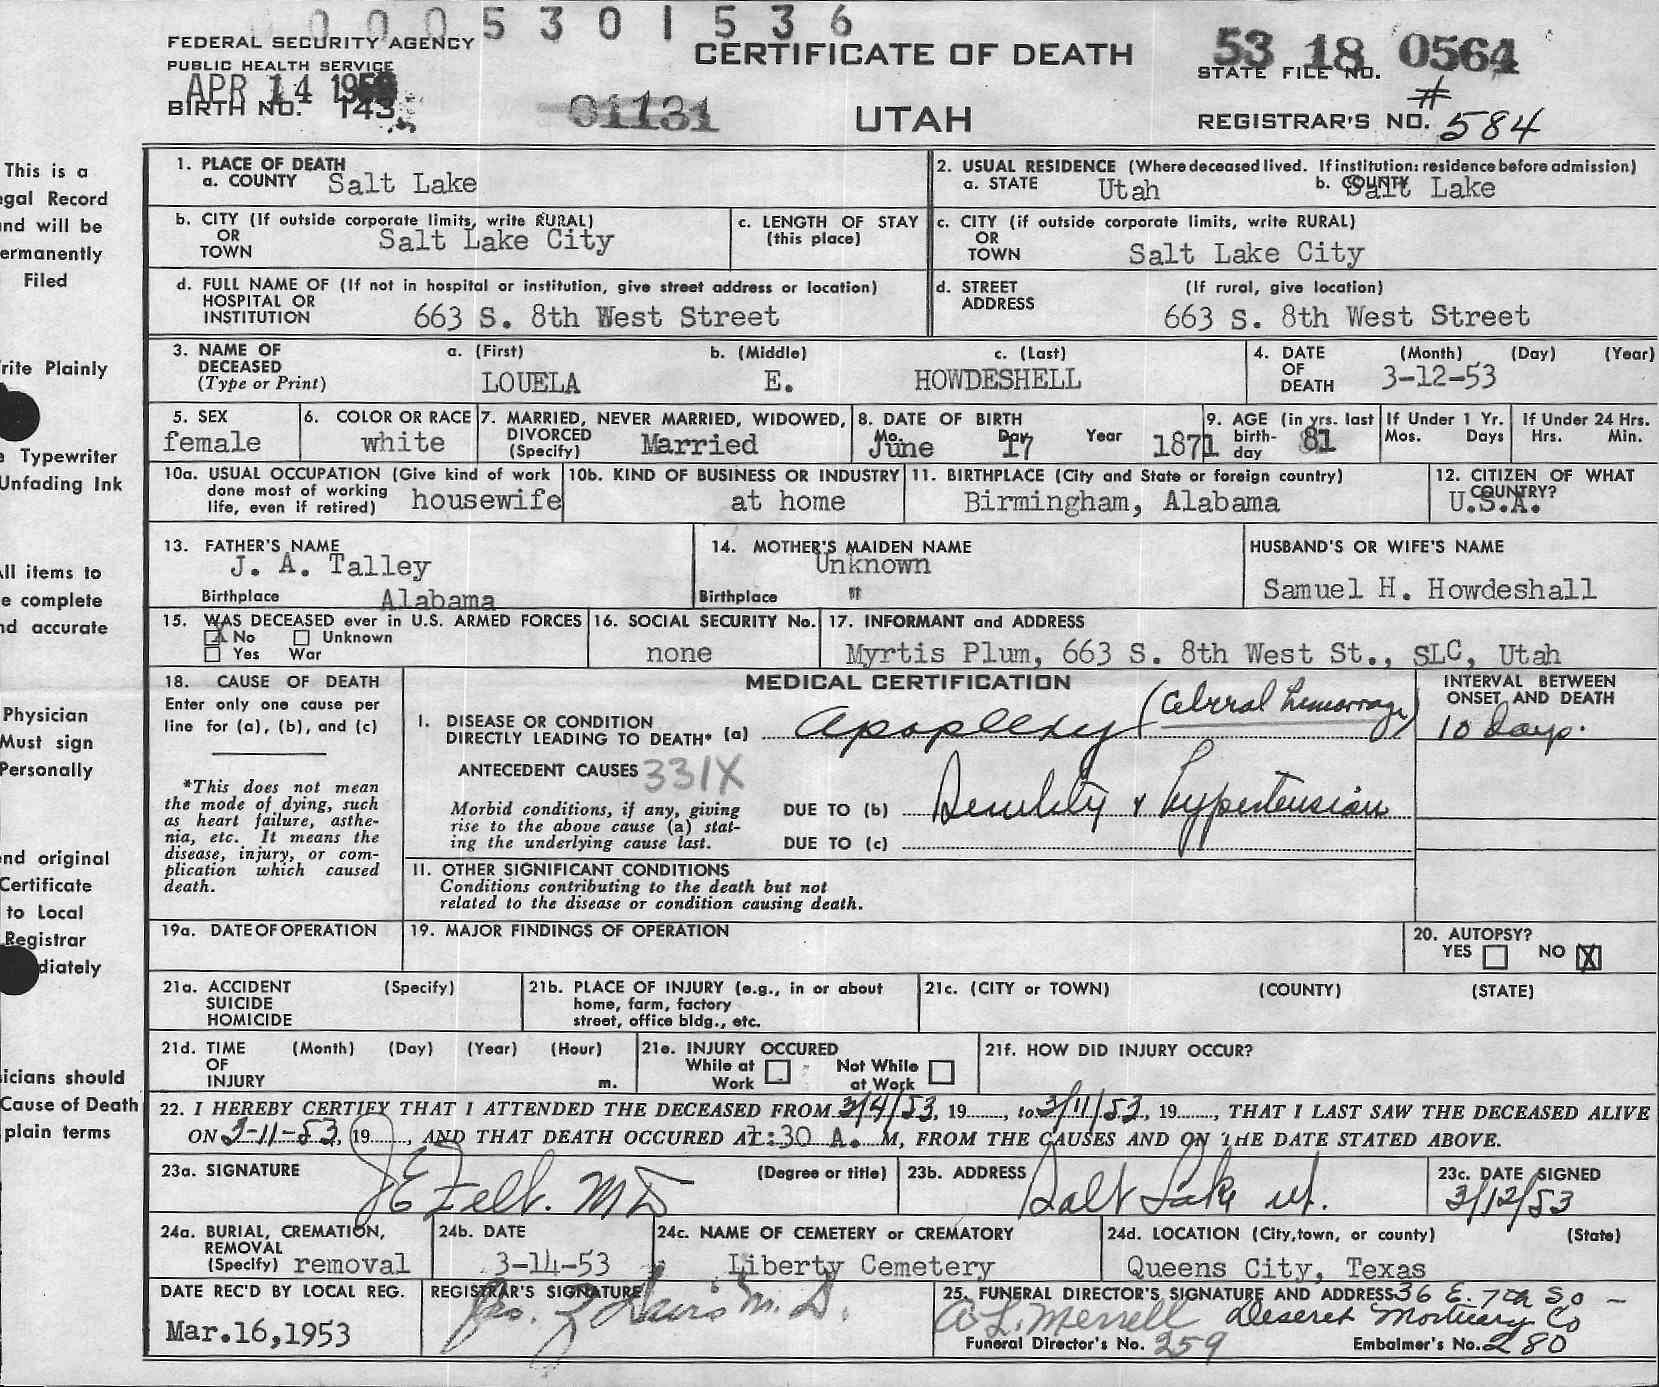 0005301536
FEDERAL SECURITY AGENCY
PUBLIC HEALTH SERVICE
CERTIFICATE OF DEATH
53 18 0564
STATE FILE NO.
APR 14
BIRTH NO. 143
01131
UTAH
REGISTRAR'S NO. # 584
This is a
egal Record
nd will be
ermanently
Filed
rite Plainly
Typewriter
Unfading Ink
ll items to
e complete
nd accurate
Physician
Must sign
Personally
nd original
Certificate
to Local
Registrar
diately
icians should
Cause of Death
plain terms
1. PLACE OF DEATH
a. COUNTY Salt Lake
2. USUAL RESIDENCE (Where deceased lived. If institution: residence before admission)
a. STATE Utah b. COUNTY Salt Lake
b. CITY (If outside corporate limits, write RURAL)
OR
TOWN Salt Lake City
c. LENGTH OF STAY
(this place)
c. CITY (if outside corporate limits, write RURAL)
OR
TOWN Salt Lake City
d. FULL NAME OF (If not in hospital or institution, give street address or location)
HOSPITAL OR
INSTITUTION 663 S. 8th West Street
d. STREET (If rural, give location)
ADDRESS 663 S. 8th West Street
3. NAME OF a. (First) b. (Middle) c. (Last)
DECEASED
(Type or Print) LOUELA E. HOWDESHELL
4. DATE (Month) (Day) (Year)
OF
DEATH 3-12-53
5. SEX
female
6. COLOR OR RACE
white
7. MARRIED, NEVER MARRIED, WIDOWED,
DIVORCED
(Specify) Married
8. DATE OF BIRTH
Mo. Day Year
June 17 1871
9. AGE (in yrs. last
birth-
day 81
If Under 1 Yr.
Mos. Days
If Under 24 Hrs.
Hrs. Min.
10a. USUAL OCCUPATION (Give kind of work
done most of working
life, even if retired) housewife
10b. KIND OF BUSINESS OR INDUSTRY
at home
11. BIRTHPLACE (City and State or foreign country)
Birmingham, Alabama
12. CITIZEN OF WHAT
COUNTRY?
U.S.A.
13. FATHER'S NAME
J. A. Talley
Birthplace Alabama
14. MOTHER'S MAIDEN NAME
Unknown
Birthplace "
HUSBAND'S OR WIFE'S NAME
Samuel H. Howdeshall
15. WAS DECEASED ever in U.S. ARMED FORCES
X No Unknown
Yes War
16. SOCIAL SECURITY No.
none
17. INFORMANT and ADDRESS
Myrtis Plum, 663 S. 8th West St., SLC, Utah
18. CAUSE OF DEATH
Enter only one cause per
line for (a), (b), and (c)
*This does not mean
the mode of dying, such
as heart failure, asthe-
nia, etc. It means the
disease, injury, or com-
plication which caused
death.
MEDICAL CERTIFICATION
I. DISEASE OR CONDITION
DIRECTLY LEADING TO DEATH* (a) Apoplexy (Cebral hemorrage)
ANTECEDENT CAUSES 331X
Morbid conditions, if any, giving
rise to the above cause (a) stat-
ing the underlying cause last.
DUE TO (b) & hypertension
DUE TO (c)
INTERVAL BETWEEN
ONSET AND DEATH
10 days.
II. OTHER SIGNIFICANT CONDITIONS
Conditions contributing to the death but not
related to the disease or condition causing death.
19a. DATE OF OPERATION
19. MAJOR FINDINGS OF OPERATION
20. AUTOPSY?
YES NO X
21a. ACCIDENT (Specify)
SUICIDE
HOMICIDE
21b. PLACE OF INJURY (e.g., in or about
home, farm, factory
street, office bldg., etc.
21c. (CITY or TOWN) (COUNTY) (STATE)
21d. TIME (Month) (Day) (Year) (Hour)
OF
INJURY m.
21e. INJURY OCCURED
While at Not While
Work at Work
21f. HOW DID INJURY OCCUR?
22. I HEREBY CERTIFY THAT I ATTENDED THE DECEASED FROM 3/4/53, 19......, to 3/11/53, 19......, THAT I LAST SAW THE DECEASED ALIVE
ON 3-11-53, 19......, AND THAT DEATH OCCURED AT 1:30 A. M, FROM THE CAUSES AND ON THE DATE STATED ABOVE.
23a. SIGNATURE (Degree or title)
J E Felt. MD
23b. ADDRESS
Salt Lake ut.
23c. DATE SIGNED
3/12/53
24a. BURIAL, CREMATION,
REMOVAL
(Specify) removal
24b. DATE
3-14-53
24c. NAME OF CEMETERY or CREMATORY
Liberty Cemetery
24d. LOCATION (City, town, or county) (State)
Queens City, Texas
DATE REC'D BY LOCAL REG.
Mar.16,1953
REGISTRAR'S SIGNATURE
Davis M.D.
25. FUNERAL DIRECTOR'S SIGNATURE AND ADDRESS 36 E. 7th So
A L Merrell Deseret Mortuary Co
Funeral Director's No. 259 Embalmer's No. 280